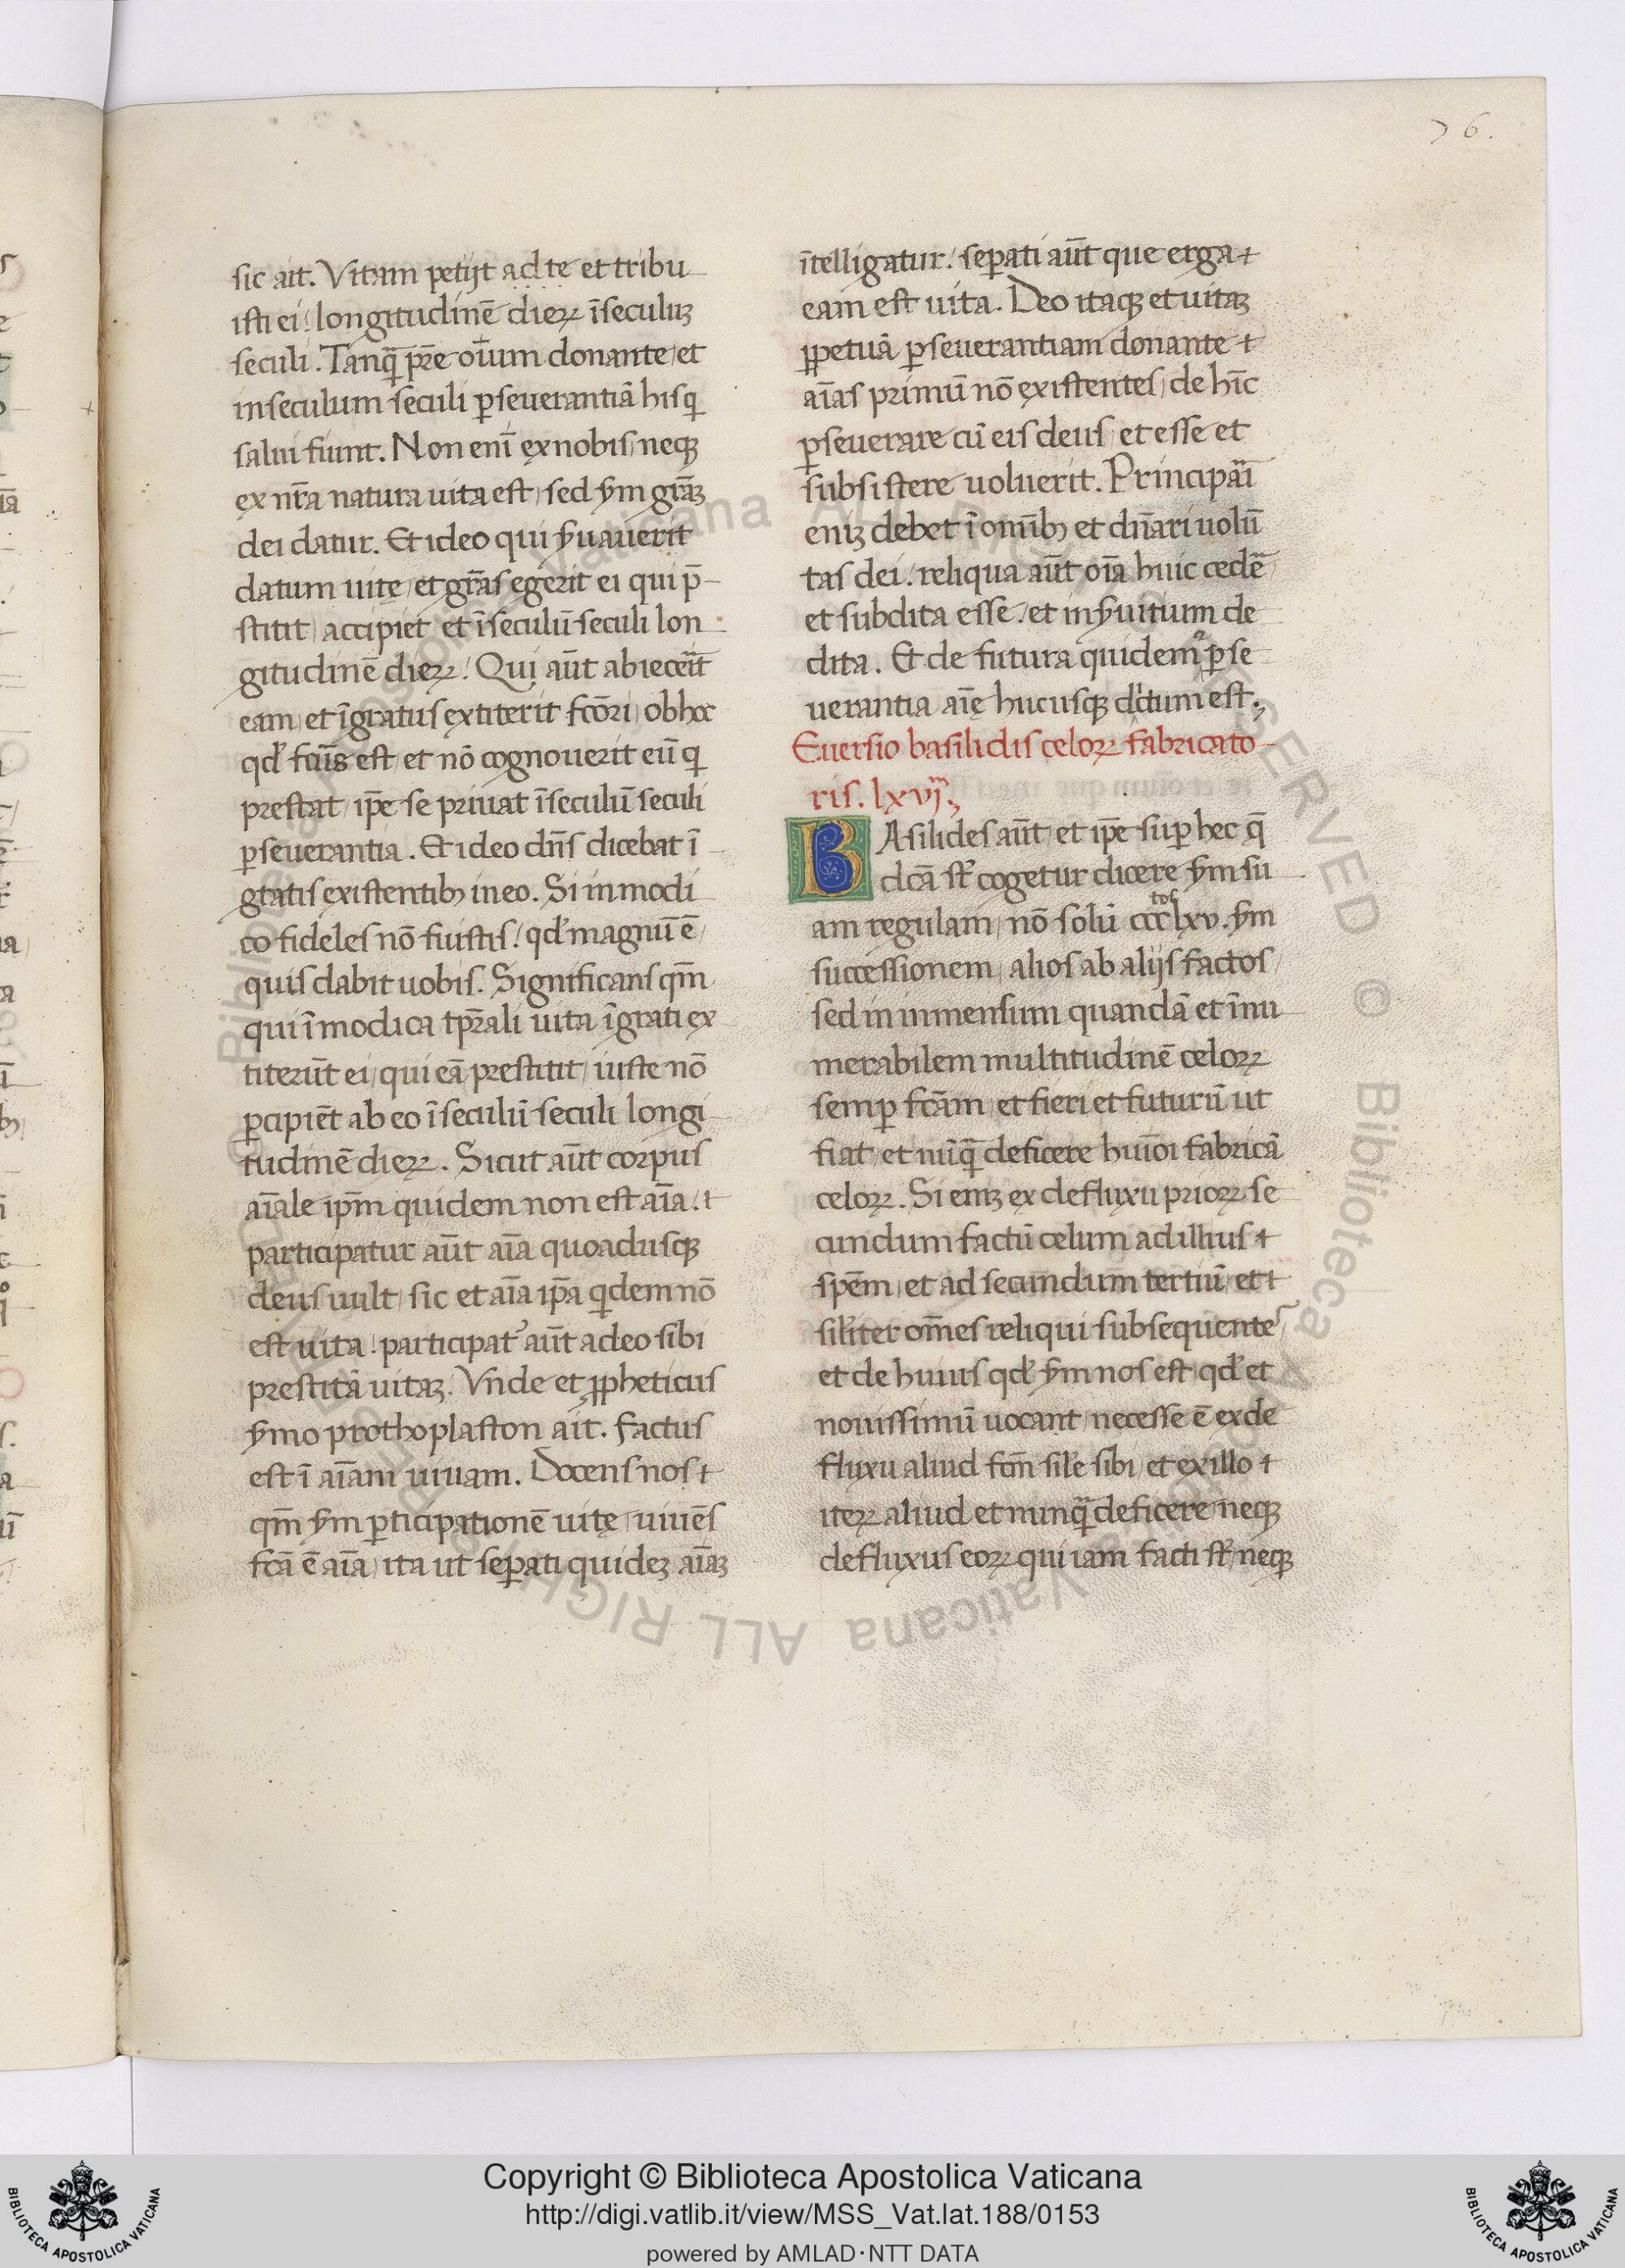 76.
sic ait. Vitam petijt ad te et tribu
isti ei! longitudinē dieꝝ ī seculuꝫ
seculi. Tanq̄ pr̄e oīum donante et
in seculum seculi ꝑseuerantiā hisq̇
salui fiunt. Non enī ex nobis neqꝫ
ex nr̄a natura uita est, sed ẏm gr̄aꝫ
dei datur. Et ideo qui ẏuauerit
datum uite, et gr̄as egerit ei qui p̄
stitit, accipiet et ī seculū seculi lon
gitudinē dieꝝ! Qui aūt abieceīt
eam, et īgratus extiterit fcōri, ob hoc
qď fcūs est, et nō cognouerit eū q̇
prestat, ip̄e se priuat ī seculū seculi
ꝑseuerantia. Et ideo dn̄s dicebat ī
gratis existentibꝫ in eo. Si in modi
co fideles nō fuistis! qď magnū ē,
quis dabit uobis. Significans qm̄
qui ī modica tpr̄ali uita īgrati ex
titerūt ei, qui eā prestitit, iuste nō
ꝑcipiēt ab eo ī seculū seculi longi
tudinē dieꝝ. Sicut aūt corpus
aīale ipm̄ quidem non est aīa, ɫ
participatur aūt aīa quoadusqꝫ
deus uult, sic et aīa ip̄a q̇dem nō
est uita! participat᷒ aūt adeo sibi
prestitā uitaꝫ. Vnde et ꝓpheticus
ẏmo prothoplaston ait. factus
est ī aīam uiuam. Docens nos ɫ
qm̄ ẏm ꝑticipationē uite, uiuēs
fcā ē aīa, ita ut seꝑati quideꝫ aīaꝫ
ītelligatur. seꝑati aūt que erga ɫ
eam est uita. Deo itaqꝫ et uitaꝫ
ꝑpetuā ꝑseuerantiam donante ɫ
aīas primū nō existentes, de hīc
ꝑseuerare cū eis deus, et esse et
subsistere uoluerit. Principaī
eniꝫ debet ī omībꝫ et dn̄ari uolū
tas dei, reliqua aūt oīa huic cedē
et subdita esse, et in ẏuitium de
dita. Et de futura quidem ꝑse
uerantia aīe hucusqꝫ dc̄tum est,
Euersio basilidis celoꝝ fabricato
ris. lxvj.
BAsilides aūt et ip̄e suꝑ hec q̄
dcā st᷒ cogetur dicere ẏm su
am regulam, nō solū ccclxv. ẏm
tos
successionem, alios ab alijs factos,
sed in inmensum quandā et īnu
merabilem multitudinē celoꝝ
semꝑ fcām, et fieri et futurū ut
fiat, et nūq̄ deficere huiōi fabricā
celoꝝ. Si eniꝫ ex defluxu prioꝝ se
cundum factū celum ad illius ɫ
spēm, et ad secundum tertiū, et ɫ
siľiter om̄es reliqui subsequente᷒,
et de huius qď ẏm nos est, qď et
nouissimū uocant, necesse ē ex de
fluxu aliud fcm̄ siľe sibi, et ex illo ɫ
iteꝝ aliud et nunq̄ deficere, neqꝫ
defluxus eoꝝ qui iam facti st᷒, neqꝫ
Copyright © Biblioteca Apostolica Vaticana
http://digi.vatlib.it/view/MSS_Vat.lat.188/0153
powered by AMLAD·NTT DATA
BIBLIOTECA APOSTOLICA VATICANA
BIBLIOTECA APOSTOLICA VATICANA